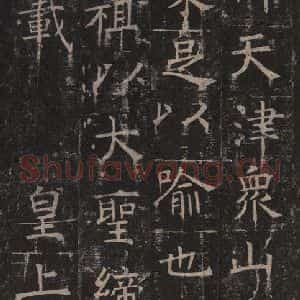 天津眾山
足以喻也
祖以大聖締
載 皇上
Shufawang.CN